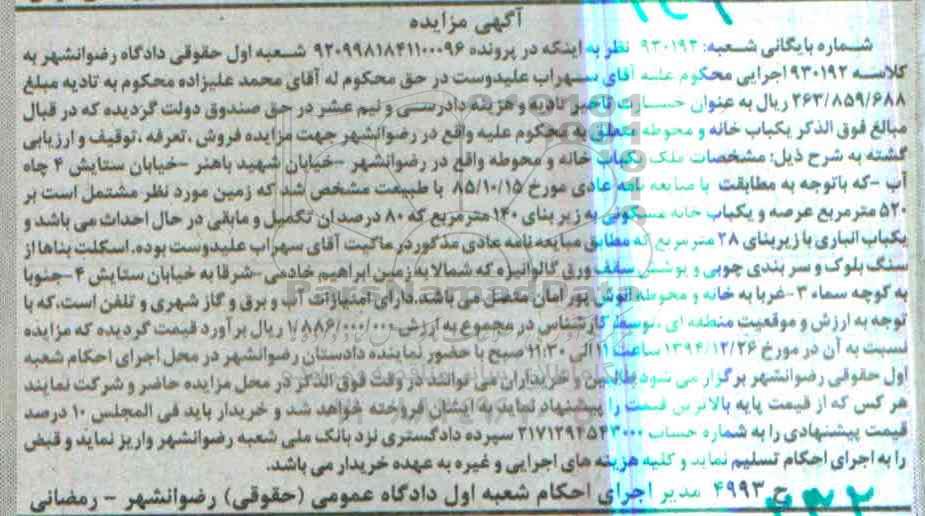 آگهی مزایده
شماره بایگانی شعبه: ۹۳۰۱۹۲ نظر به اینکه در پرونده ۹۲۰۹۹۸۱۸۴۱۱۰۰۰۹۶ شعبه اول حقوقی دادگاه رضوانشهر به
کلاسه ۹۳۰۱۹۲ اجرایی محکوم علیه آقای سهراب علیدوست در حق محکوم له آقای محمد علیزاده محکوم به تادیه مبلغ
۲۶۳/۸۵۹/۶۸۸ ریال به عنوان خسارت تاخیر تادیه و هزینه دادرسی و نیم عشر در حق صندوق دولت گردیده که در قبال
مبالغ فوق الذکر یکباب خانه و محوطه متعلق به محکوم علیه واقع در رضوانشهر جهت مزایده فروش ،تعرفه ،توقیف و ارزیابی
گشته به شرح ذیل: مشخصات ملک یکباب خانه و محوطه واقع در رضوانشهر -خیابان شهید باهنر -خیابان ستایش ۴ چاه
آب -که باتوجه به مطابقت با مبایعه نامه عادی مورخ ۸۵/۱۰/۱۵ با طبیعت مشخص شد که زمین مورد نظر مشتمل است بر
۵۲۰ مترمربع عرصه و یکباب خانه مسکونی به زیر بنای ۱۴۰ مترمربع که ۸۰ درصد ان تکمیل و مابقی در حال احداث می باشد و
یکباب انباری با زیربنای ۲۸ مترمربع که مطابق مبایعه نامه عادی مذکور در ماکیت آقای سهراب علیدوست بوده.اسکلت بناها از
سنگ بلوک و سر بندی چوبی و پوشش سقف ورق گالوانیزه که شمالا به زمین ابراهیم خادمی -شرقا به خیابان ستایش ۴ -جنوبا
به کوچه سماء ۳ -غربا به خانه و محوطه انوش پور امان متصل می باشد.دارای امتیازات آب و برق و گاز شهری و تلفن است.که با
توجه به ارزش و موقعیت منطقه ای ،توسط کارشناس در مجموع به ارزش ۱/۸۸۶/۰۰۰/۰۰۰ ریال بر آورد قیمت گردیده که مزایده
نسبت به آن در مورخ ۱۳۹۴/۱۲/۲۶ ساعت ۱۱ الی ۱۱:۳۰ صبح با حضور نماینده دادستان رضوانشهر در محل اجرای احکام شعبه
اول حقوقی رضوانشهر برگزار می شود طالبین و خریداران می توانند در وقت فوق الذکر در محل مزایده حاضر و شرکت نمایند
هر کس که از قیمت پایه بالاترین قیمت را پیشنهاد نماید به ایشان فروخته خواهد شد و خریدار باید فی المجلس ۱۰ درصد
قیمت پیشنهادی را به شماره حساب ۲۱۷۱۲۹۲۵۴۳۰۰۰ سپرده دادگستری نزد بانک ملی شعبه رضوانشهر واریز نماید و قبض
را به اجرای احکام تسلیم نماید و کلیه هزینه های اجرایی و غیره به عهده خریدار می باشد.
ح ۴۹۹۳ مدیر اجرای احکام شعبه اول دادگاه عمومی (حقوقی) رضوانشهر - رمضانی
ParsNamadData